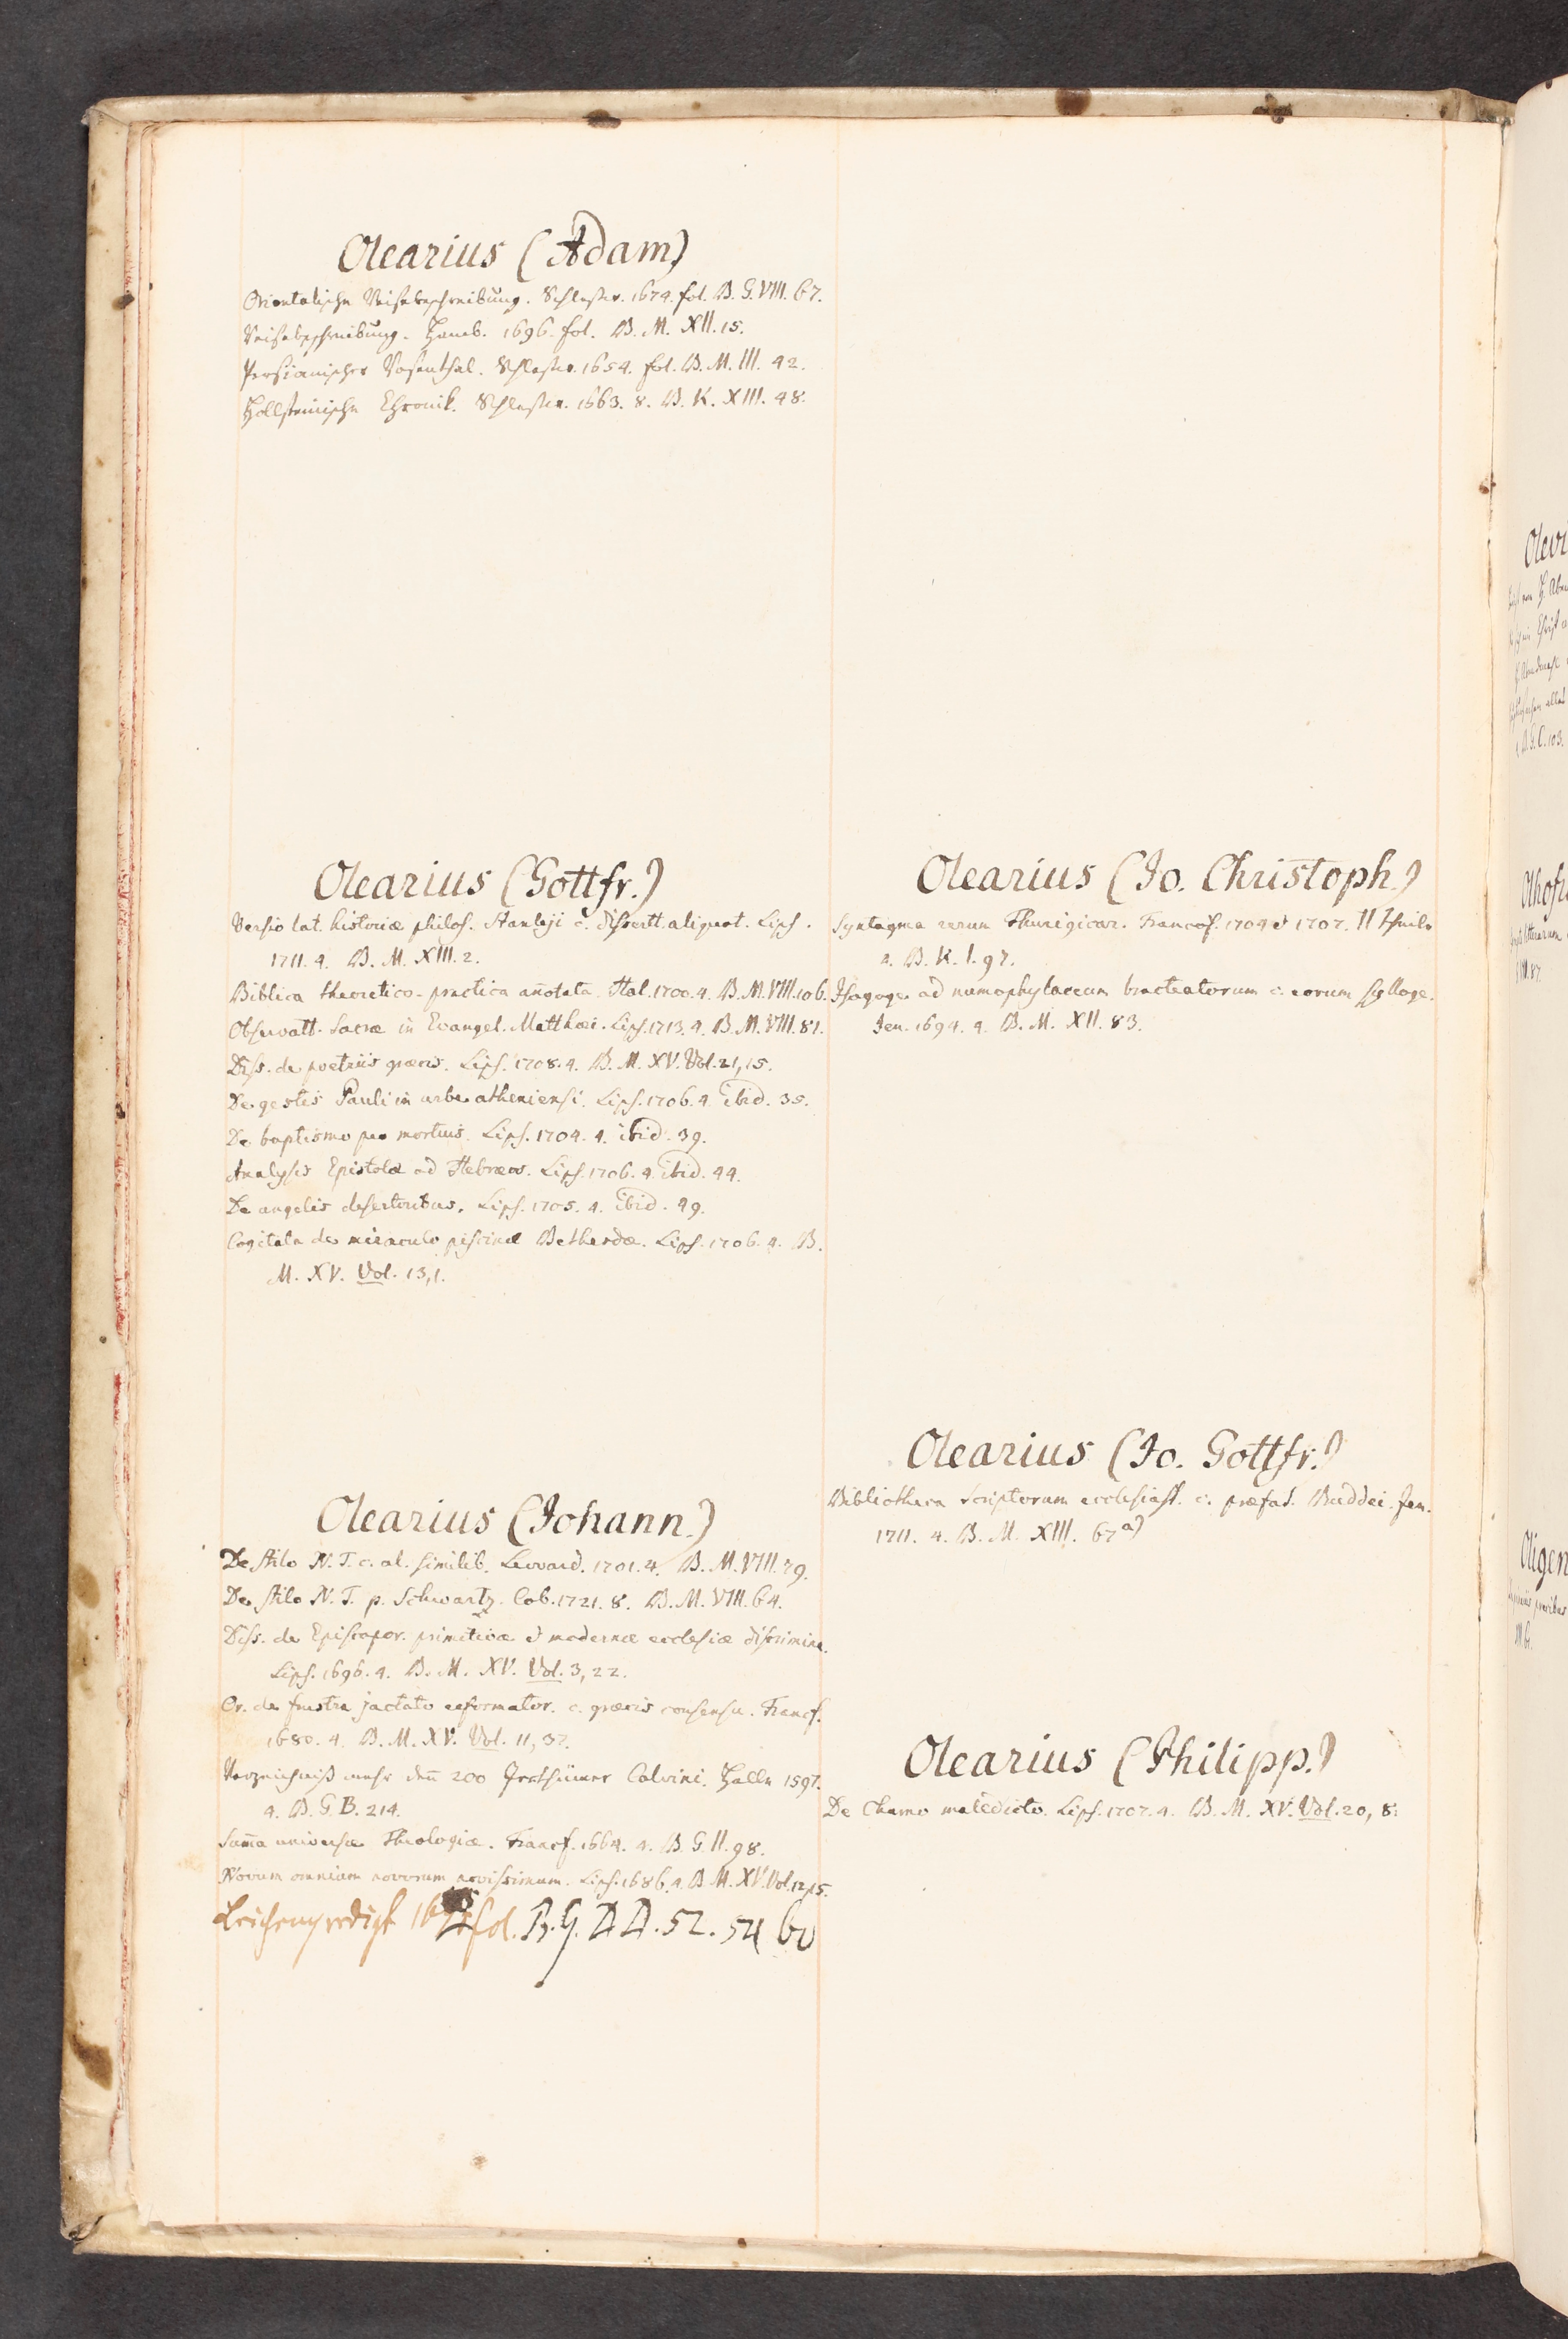 Olearius (Adam)
Orientalische Reisebeschreibung. Schlesw. 1674. fol. B. G. VIII. 67.
Reisebeschreibung. Hamb. 1696. fol. B. M. XII. 15.
Persianischer Rosenthal. Schlesw. 1654. fol. B. M. III. 42.
Hollsteinische Chronik. Schlesw. 1663. 8. B. K. XIII. 48.
Olearius (Gottfr.)
Versio lat. historiæ philos. Stanleji c. dissertt. aliquot. Lips.
1711. 4. B. M. XIII. 2.
Biblica theoretico-practica añotata. Hal. 1700. 4. B. M. VIII. 106.
Observatt. Sacræ in Evangel. Matthæi. Lips. 1713. 4. B. M. VIII. 81.
Diss. de poetriis græcis. Lips. 1708. 4. B. M. XV. Vol. 21, 15.
De gestis Pauli in urbe atheniensi. Lips. 1706. 4. ibid. 35.
De baptismo pro mortuis. Lips. 1704. 4. ibid. 39.
Analysis Epistolæ ad Hebræos. Lips. 1706. 4. ibid. 44.
De angelis desertoribus. Lips. 1705. 4. ibid. 49.
Cogitata de miraculo piscinæ Bethesdæ. Lips. 1706. 4. B.
M. XV. Vol. 13, 1.
Olearius (Johann.)
De stilo N. T. c. al. similib. Leovard. 1701. 4. B. M. VIII. 79.
De stilo N. T. p. Schwartz. Cob. 1721. 8. B. M. VIII. 64.
Diss. de Episcopor. primitivæ & modernæ ecclesiæ discrimine.
Lips. 1696. 4. B. M. XV. Vol. 3, 22.
Or. de frustra jactato reformator. c. græcis consensu. Francf.
1680. 4. B. M. XV. Vol. 11, 37.
Verzeichniß mehr deñ 200 Irrthümer Calvini. Halle 1597.
4. B. G. B. 214.
Sum̃a universæ Theologiæ. Francf. 1664. 4. B. G. II. 98.
Novum omnium novorum novissimum. Lips. 1686. 4. B. M. XV. Vol. 12, 15.
Leichenpredigt fol. B. G. DD. 52. 54 60
Olearius (Jo. Christoph.)
Syntagma rerum Thuringicar. Francof. 1704 & 1707. II Theile
4. B. K. I. 97.
Isagoge ad numophylaceum bracteatorum c. eorum sylloge.
Jen. 1694. 4. B. M. XII. 83.
Olearius (Jo. Gottfr.)
Bibliotheca Scriptorum ecclesiast. c. præfat. Buddei. Jen.
1711. 4. B. M. XIII. 67 a)
Olearius (Philipp.)
De Chamo maledicto. Lips. 1707. 4. B. M. XV. Vol. 20, 8.